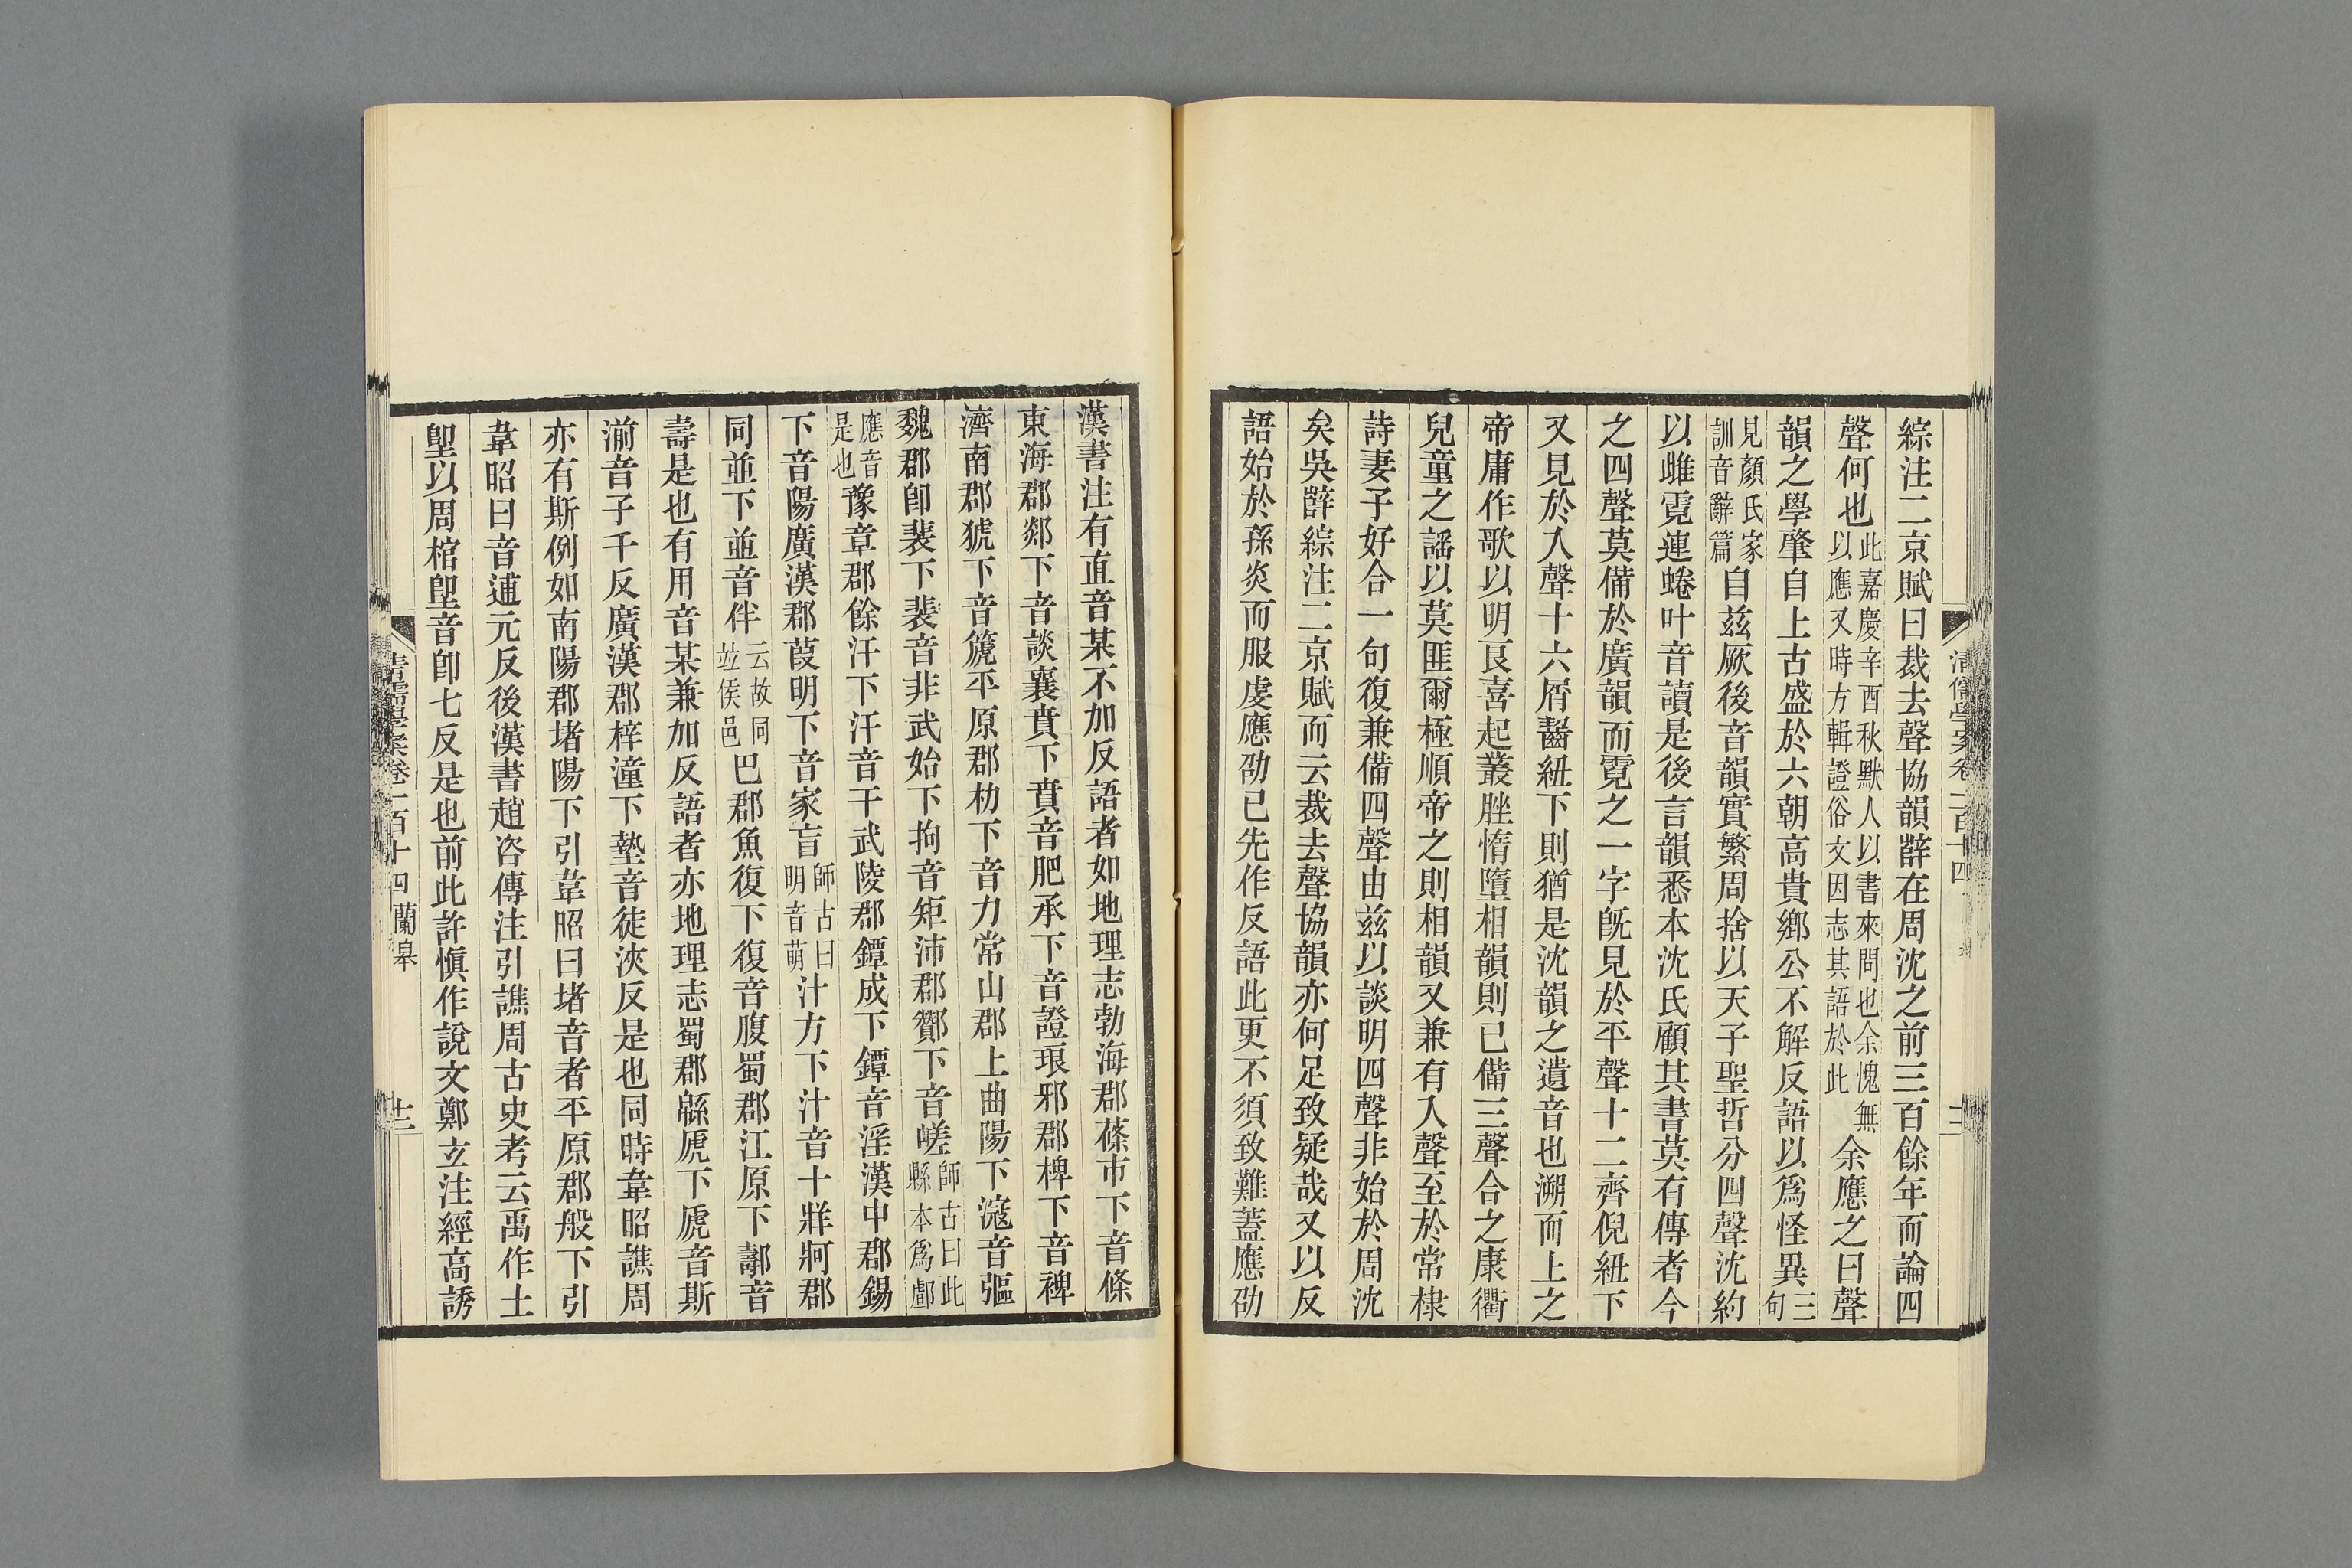 綜注二京賦曰裁去聲協韻辥在周沈之前三百餘年而論四
聲何也此嘉慶辛酉秋默人以書來問也余愧無以應又時方輯證俗文因志其語於此余應之曰聲
韻之學肇自上古盛於六朝高貴鄉公不解反語以爲怪異三句
見顏氏家訓音辭篇自兹厥後音韻實繁周捨以天子聖哲分四聲沈約
以雌霓連蜷叶音讀是後言韻悉本沈氏顧其書莫有傳者今
之四聲莫備於廣韻而霓之一字旣見於平聲十二齊倪紐下
又見於入聲十六屑齧紐下則猶是沈韻之遺音也溯而上之
帝庸作歌以明艮喜起叢脞惰墮相韻則已備三聲合之康衢
兒童之謠以莫匪爾極順帝之則相韻又兼有入聲至於常棣
詩妻子好合一句復兼備四聲由兹以談明四聲非始於周沈
矣吳辥綜注二京賦而云裁去聲協韻亦何足致疑哉又以反
語始於孫炎而服虔應劭已先作反語此更不須致難蓋應劭
漢書注有直音某不加反語者如地理志勃海郡蓨市下音條
東海郡郯下音談襄賁下賁音肥承下音證琅邪郡椑下音裨
濟南郡猇下音篪平原郡朸下音力常山郡上曲陽下滱音彄
魏郡卽裴下裴音非武始下拘音矩沛郡酇下音嵯師古曰此縣本爲𨞸
應音是也豫章郡餘汗下汗音干武陵郡鐔成下鐔音淫漢中郡鍚
下音陽廣漢郡葭明下音家盲師古曰明音萌汁方下汁音十牂牁郡
同並下並音伴云故同竝侯邑巴郡魚復下復音腹蜀郡江原下𨞪音
壽是也有用音某兼加反語者亦地理志蜀郡緜虒下虒音斯
湔音子千反廣漢郡梓潼下墊音徒浹反是也同時韋昭譙周
亦有斯例如南陽郡堵陽下引韋昭曰堵音者平原郡般下引
韋昭曰音逋元反後漢書趙咨傳注引譙周古史考云禹作土
堲以周棺堲音卽七反是也前此許愼作說文鄭玄注經高誘
清儒學案卷二百十四 蘭皋